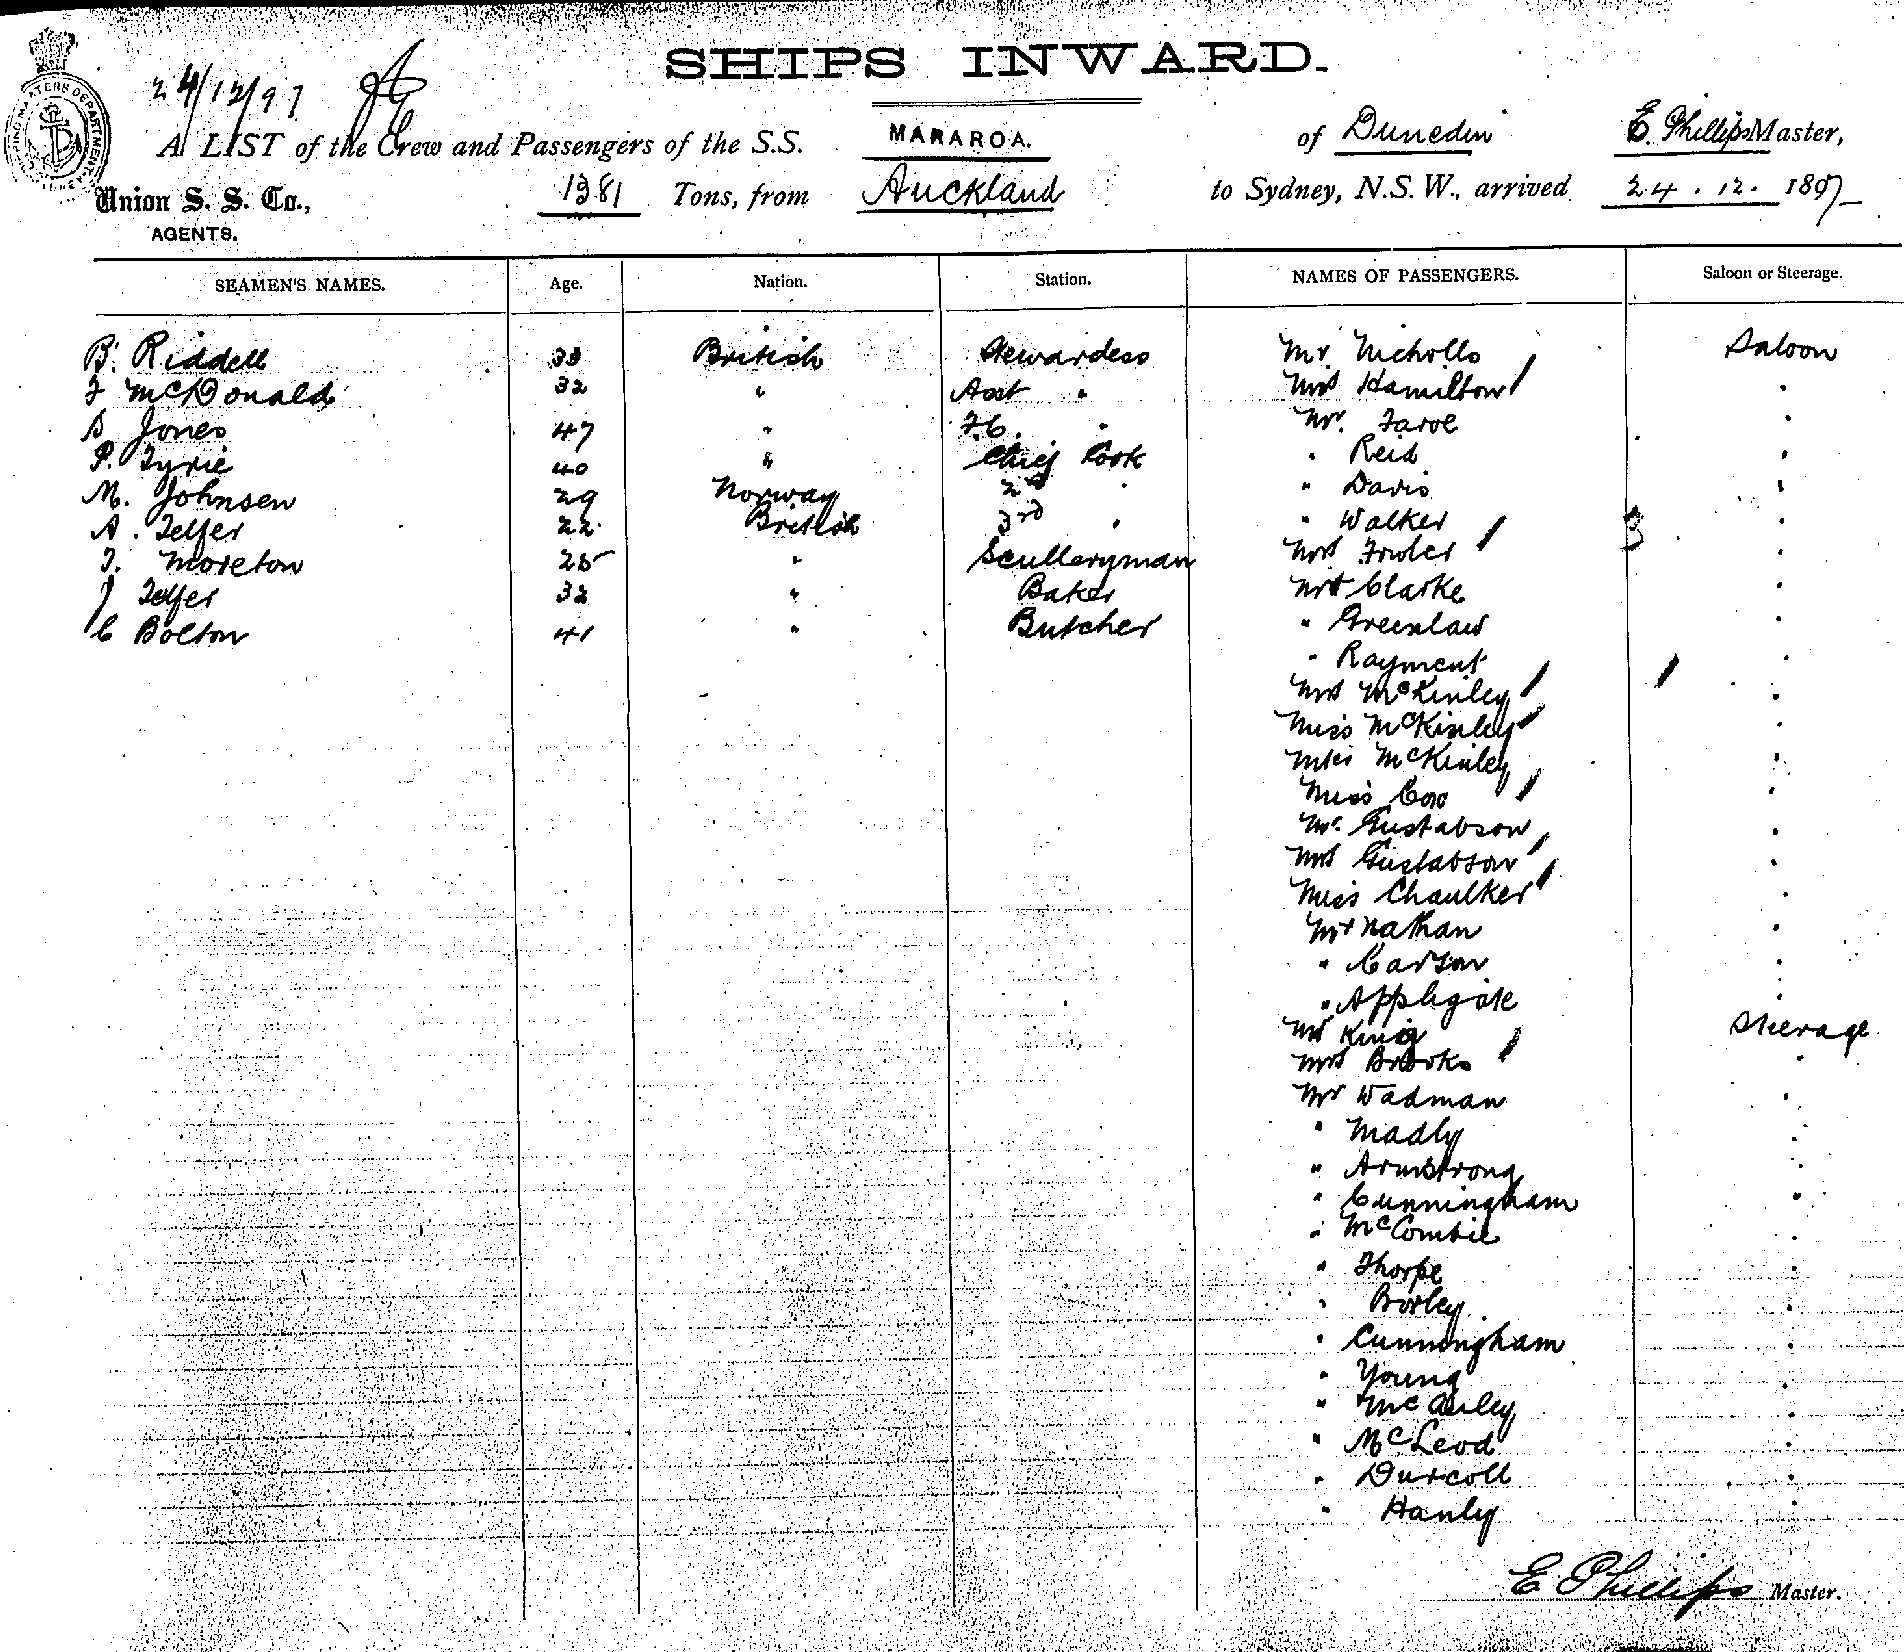 SHIPS INWARD.
24/12/97
A LIST of the Crew and Passengers of the S.S. MARAROA. of Dunedin E. Phillips Master,
Union S. S. Co., 1381 Tons, from Auckland to Sydney, N.S.W., arrived 24.12.1897
AGENTS.
SEAMEN'S NAMES. Age. Nation. Station. NAMES OF PASSENGERS. Saloon or Steerage.
B. Riddell 33 British Stewardess Mr. Nicholls Saloon
F McDonald 32 " Asst " Mrs Hamilton "
S Jones 47 " F.C. " Mr. Farol "
P. Tyrie 40 " Chief Cook " Reid "
M. Johnsen 29 Norway 2nd " " Davis "
A. Telfer 22 British 3rd " " Walker 3 "
T. Moreton 25 " Sculleryman Mrs Fowler "
J Telfer 32 " Baker Mr Clarke "
C Bolton 41 " Butcher " Greenlaw "
" Rayment "
Mrs McKinley "
Miss McKinley "
Miss McKinley "
Miss Cox "
Mr. Gustabson "
Mrs Gustabson "
Miss Chaulker "
Mr Nathan "
" Carson "
" Applegate "
Mr King Steerage
Mrs Brooks "
Mr Wadman "
" Madly "
" Armstrong "
" Cunningham "
" McCombie "
" Thorpe "
" Borley "
" Cunningham "
" Young "
" McAuley "
" McLeod "
" Durcoll "
" Hanly "
E Phillips Master.